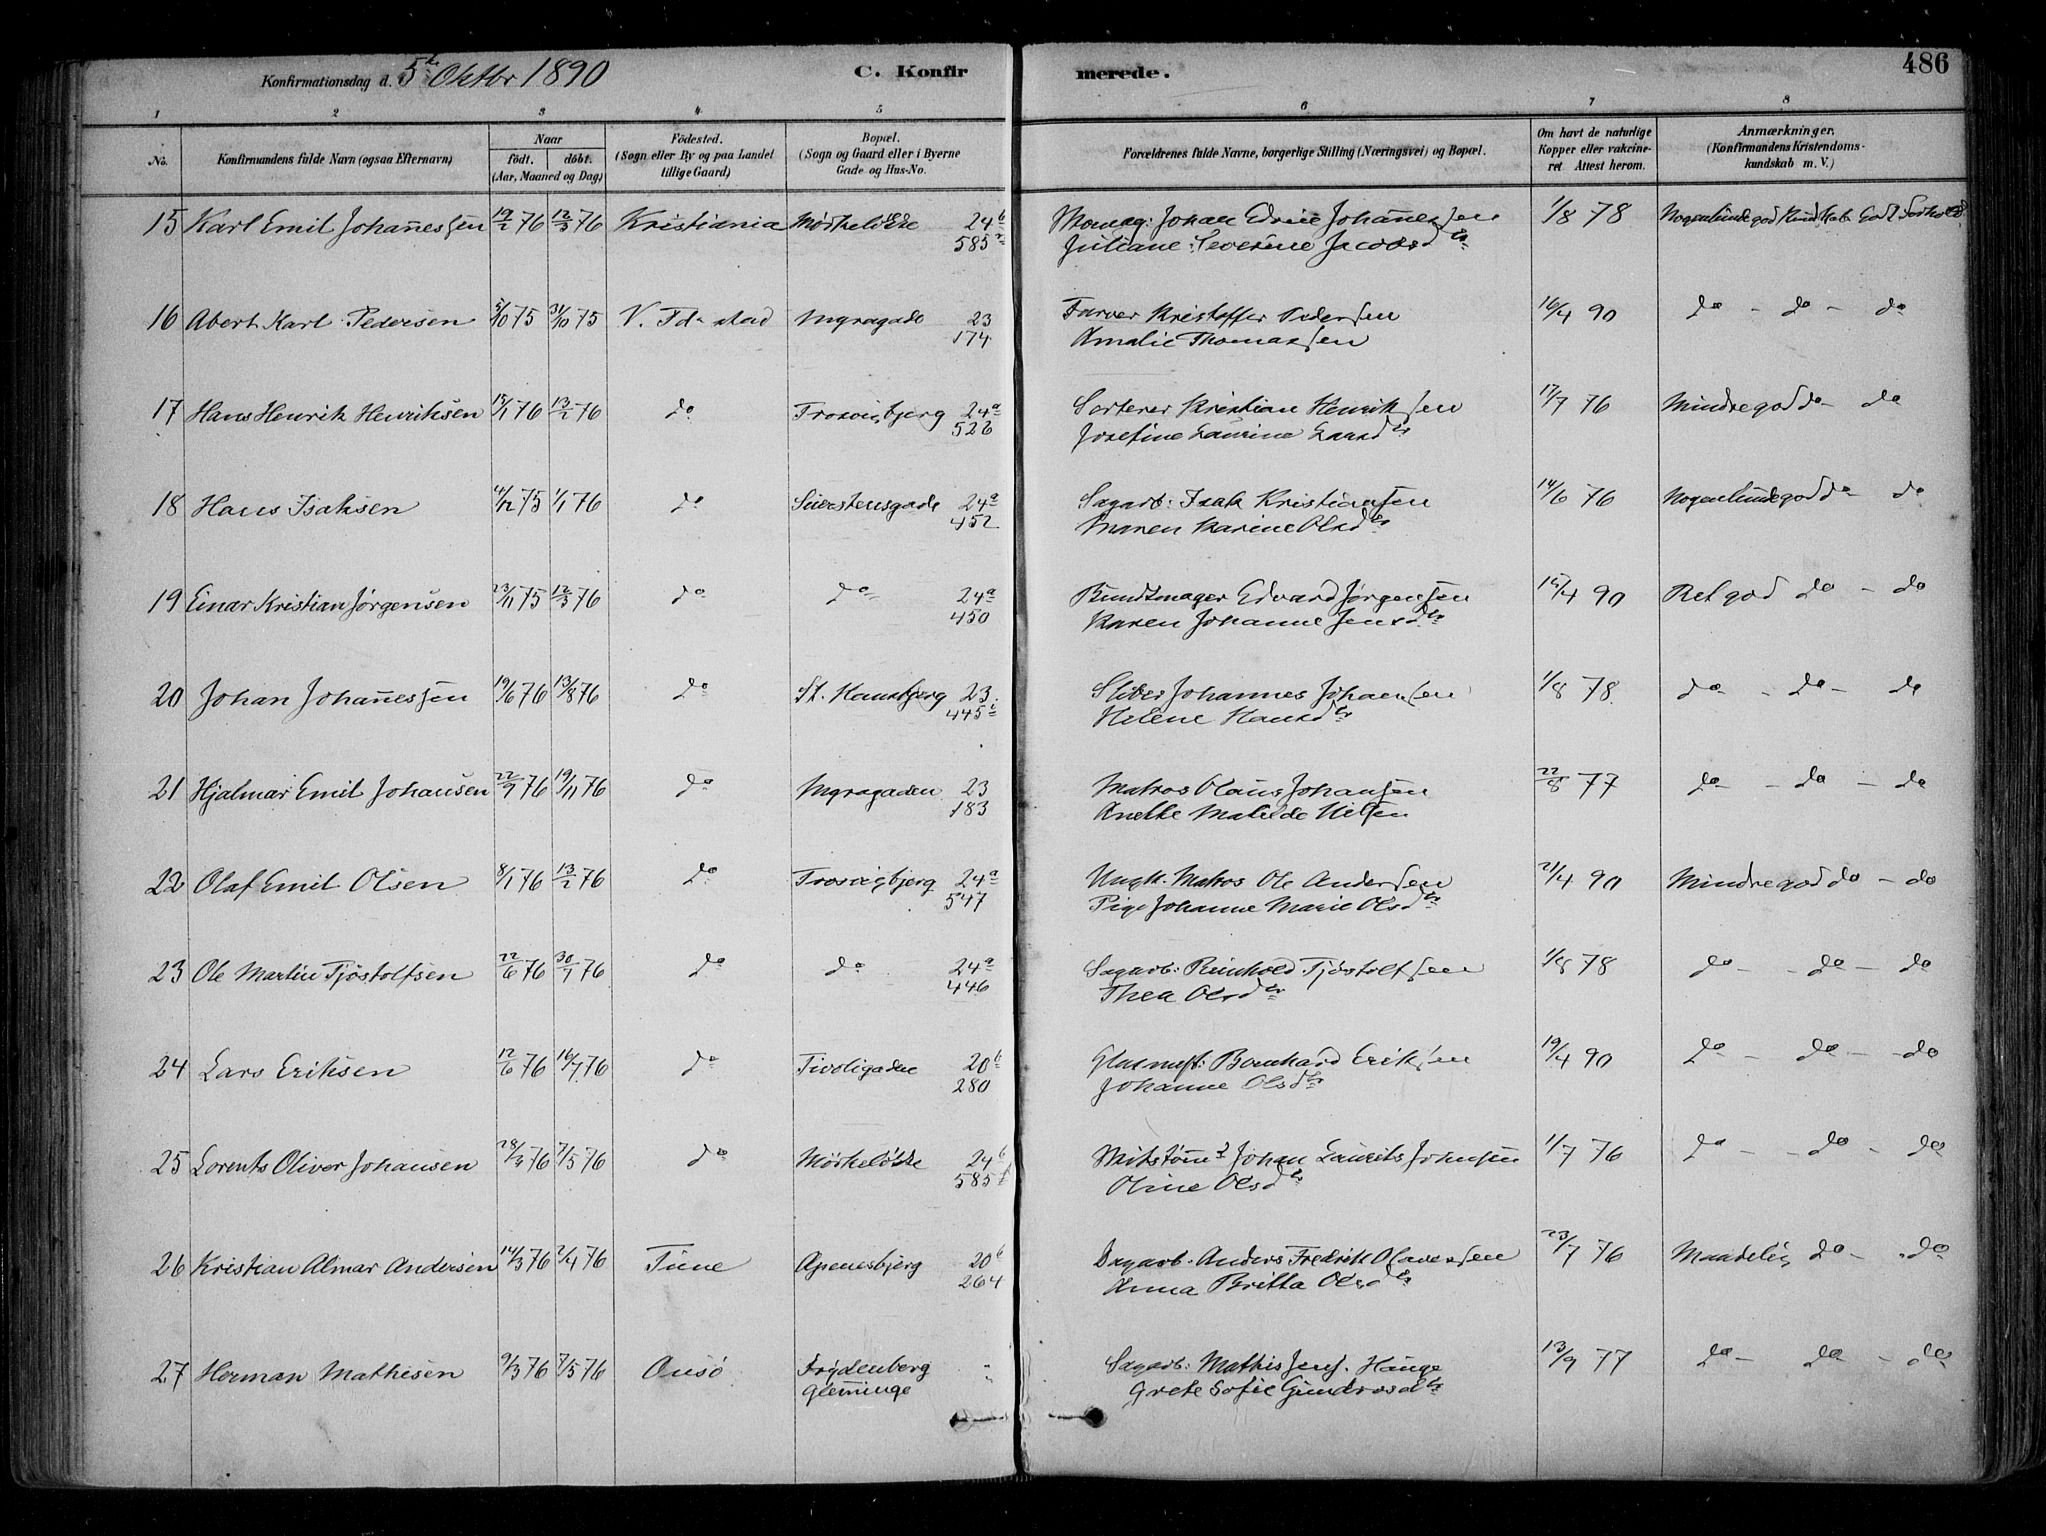 Konfirmationsdag d. 5te Oktbr 1890 C. Konfirmerede. 486
1 2 3 4 5 6 7 8
No. Konfirmandens fulde Navn (ogsaa Efternavn) Naar født. døbt. (Aar, Maaned og Dag) Fødested. (Sogn eller By og paa Landet tillige Gaard) Bopæl. (Sogn og Gaard eller i Byerne Gade og Hus-No. Forældrenes fulde Navne, borgerlige Stilling (Næringsvei) og Bopæl. Om havt de naturlige Kopper eller vakcineret Attest herom. Anmærkninger. (Konfirmandens Kristendomskundskab m. V.)
15 Karl Emil Johannessen 19/2 76 12/3 76 Kristiania Mørkeløkke 24b Johan Johannessen 1/8 78 Nogenlunde god Kundskab God Forhold
585a Juliane Severine Jacobsdtr
16 Abert Karl Pedersen 5/10 75 31/10 75 V. Fd-stad Nygagade 23 Farver Kristoffer Pedersen 16/4 90 do - do - do
174 Amalie Thomassen
17 Hans Henrik Henriksen 15/1 76 13/2 76 do Trosvigbjerg 24a Sorterer Kristian Henriksen 17/7 76 Mindre god do - do
526 Josefine Laurine Larsdtr
18 Hans Isaksen 4/12 75 1/1 76 do 24a Sagarb: Isak Kristiansen 14/6 76 Nogenlunde god do - do
452 Maren Karine Olsdtr
19 Einar Kristian Jørgensen 23/11 75 12/3 76 do do 24a Bundtmager Edvard Jørgensen 15/4 90 Ret god do - do
450 Karen Johanne Jensdtr
20 Johan Johannessen 19/6 76 13/8 76 do St. Hansbjerg 23 Johannes Johansen 1/8 78 do - do - do
445 Helene Hansdtr
21 Hjalmar Emil Johansen 22/9 76 19/11 76 do 23 Matros Olaus Johansen 22/8 77 do - do - do
183 Anette Matilde Nilsen
22 Olaf Emil Olsen 8/1 76 13/2 76 do Trosvigbjerg 24a Ungk. Matros Ole Andersen 21/4 90 Mindre god do - do
547 Pige Johanne Marie Olsdtr
23 Ole Martin Tjøstolfsen 22/6 76 30/7 76 do do 24a Sagarb: Reinhold Tjøstolfsen 1/8 78 do - do - do
446 Thea Olsdtr
24 Lars Eriksen 12/6 76 16/7 76 do Tivoligaden 20b Bernhard Eriksen 19/4 90 do - do - do
280 Johanne Olsdtr
25 Lorents Oliver Johansen 28/3 76 7/5 76 do Mørkeløkke 24b Johan Laurits Johansen 1/7 76 do - do - do
585 Oline Olsdtr
26 Kristian Almar Andersen 14/3 76 2/4 76 Tune Apenesbjerg 20b Dagarb. Anders Fredrik Olavessen 23/7 76 Maadelig do - do
264 Anna Britta Olsdtr
27 Herman Mathisen 9/3 76 7/5 76 Onsø Frydenberg " Sagarb: Mathis Jens. Hauge 13/9 77 do - do - do
Glemminge " Grete Sofie Gundrosdtr